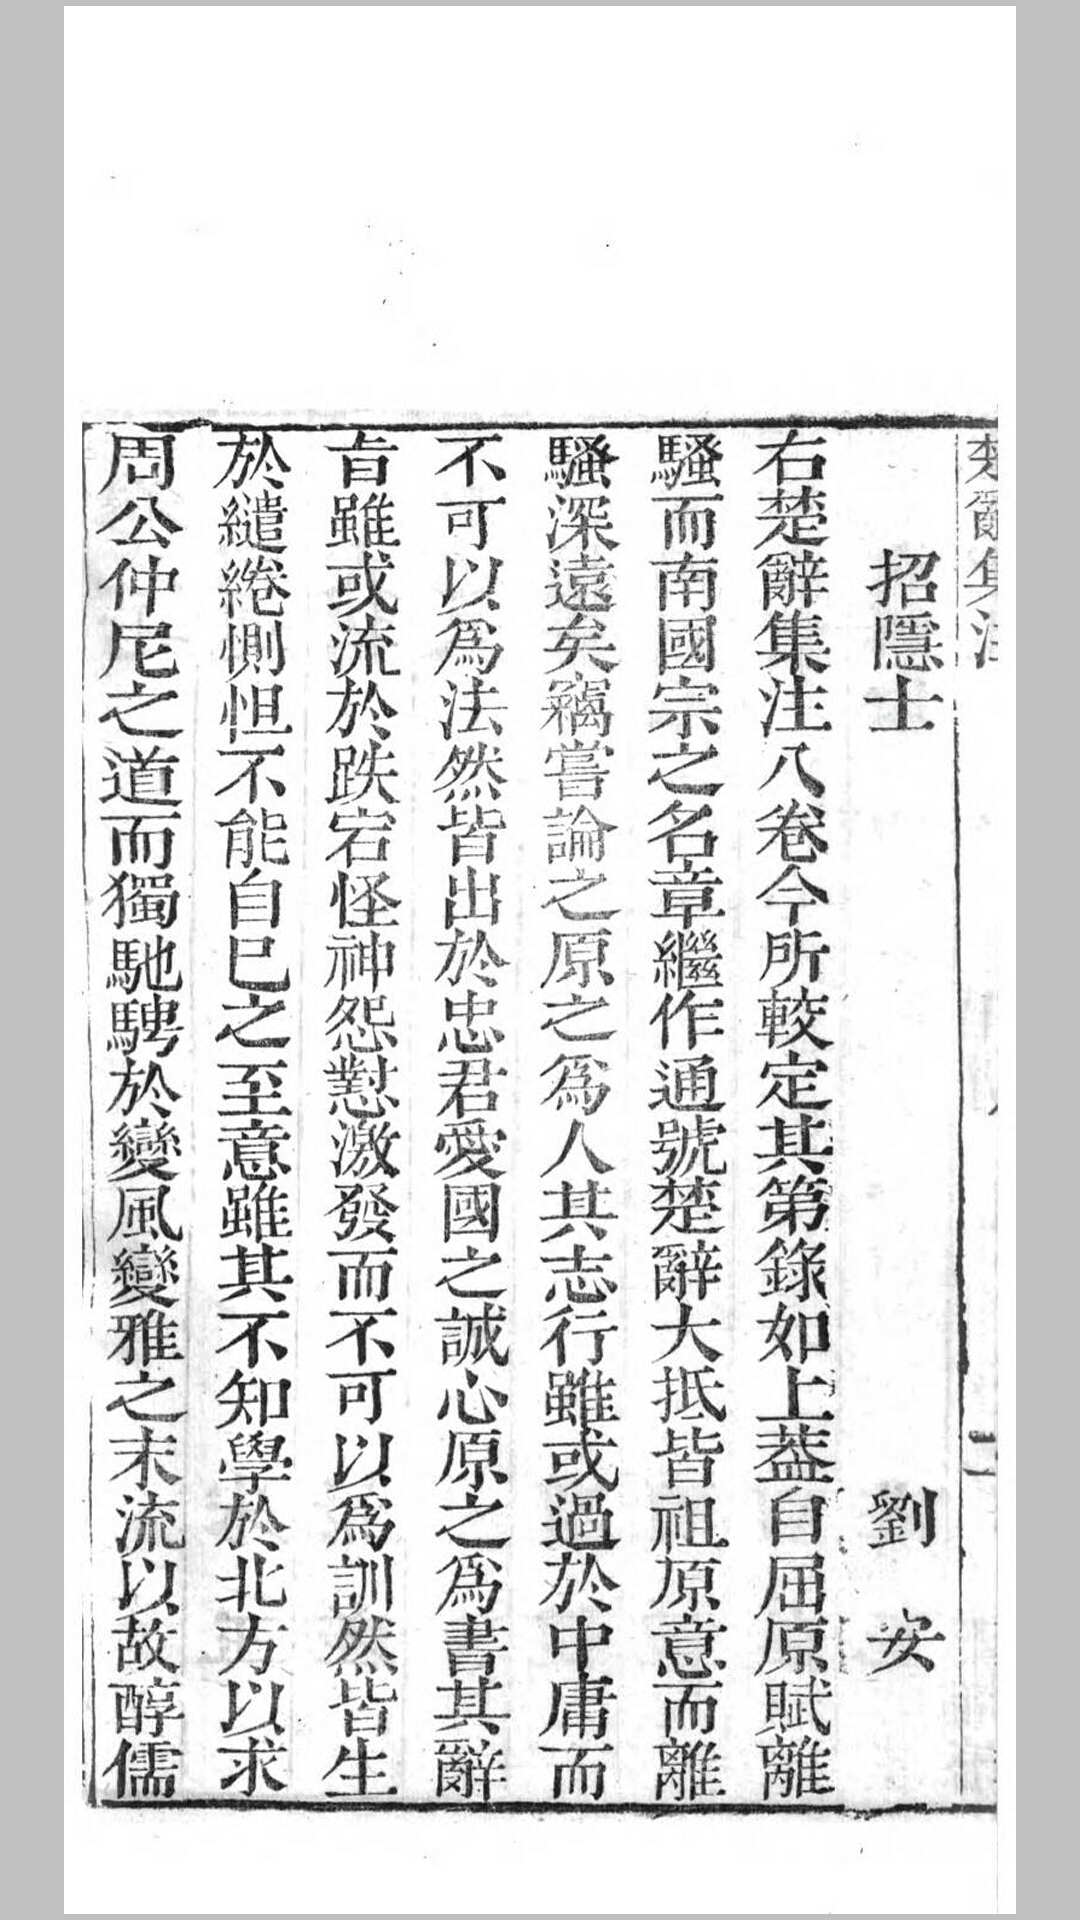 楚辭集注
招隱士 劉安
右楚辭集注八卷今所較定其第錄如上葢自屈原賦離
騷而南國宗之名章繼作通號楚辭大抵皆祖原意而離
騷深遠矣竊嘗論之原之爲人其志行雖或過於中庸而
不可以爲法然皆出於忠君愛國之誠心原之爲書其辭
㫖雖或流於跌宕怪神怨懟激發而不可以爲訓然皆生
於繾綣惻怛不能自巳之至意雖其不知學於北方以求
周公仲尼之道而獨馳騁於變風變雅之末流以故醇儒